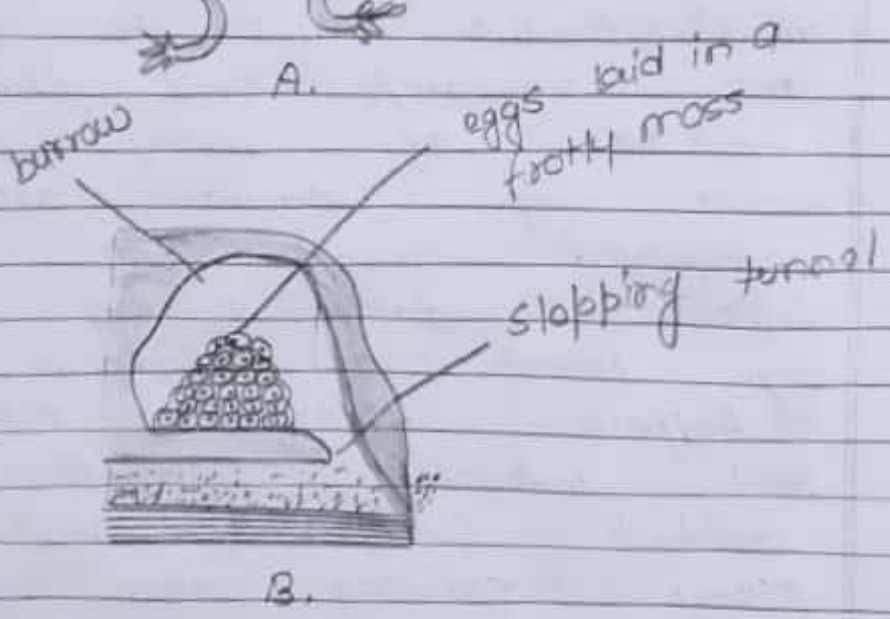 A.
burrow
eggs laid in a
frothy moss
slopping tunnel
B.